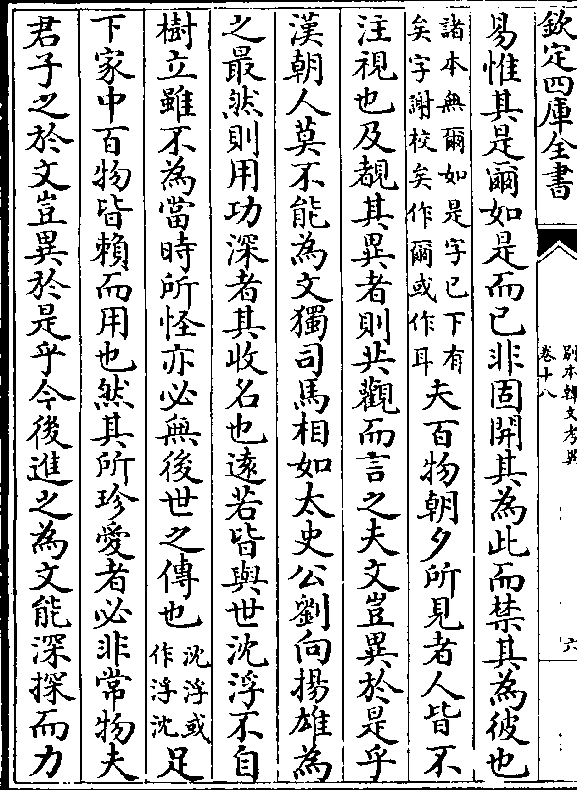 欽定四庫全書
別本韓文考異
卷十八
六
易惟其是爾如是而已非固開其為此而禁其為彼也
諸本無爾如是字已下有
矣字謝校矣作爾或作耳
夫百物朝夕所見者人皆不
注視也及覩其異者則共觀而言之夫文豈異於是乎
漢朝人莫不能為文獨司馬相如太史公劉向揚雄為
之最然則用功深者其收名也遠若皆與世沈浮不自
樹立雖不為當時所怪亦必無後世之傳也
沈浮或
作浮沈
足
下家中百物皆賴而用也然其所珍愛者必非常物夫
君子之於文豈異於是乎今後進之為文能深探而力